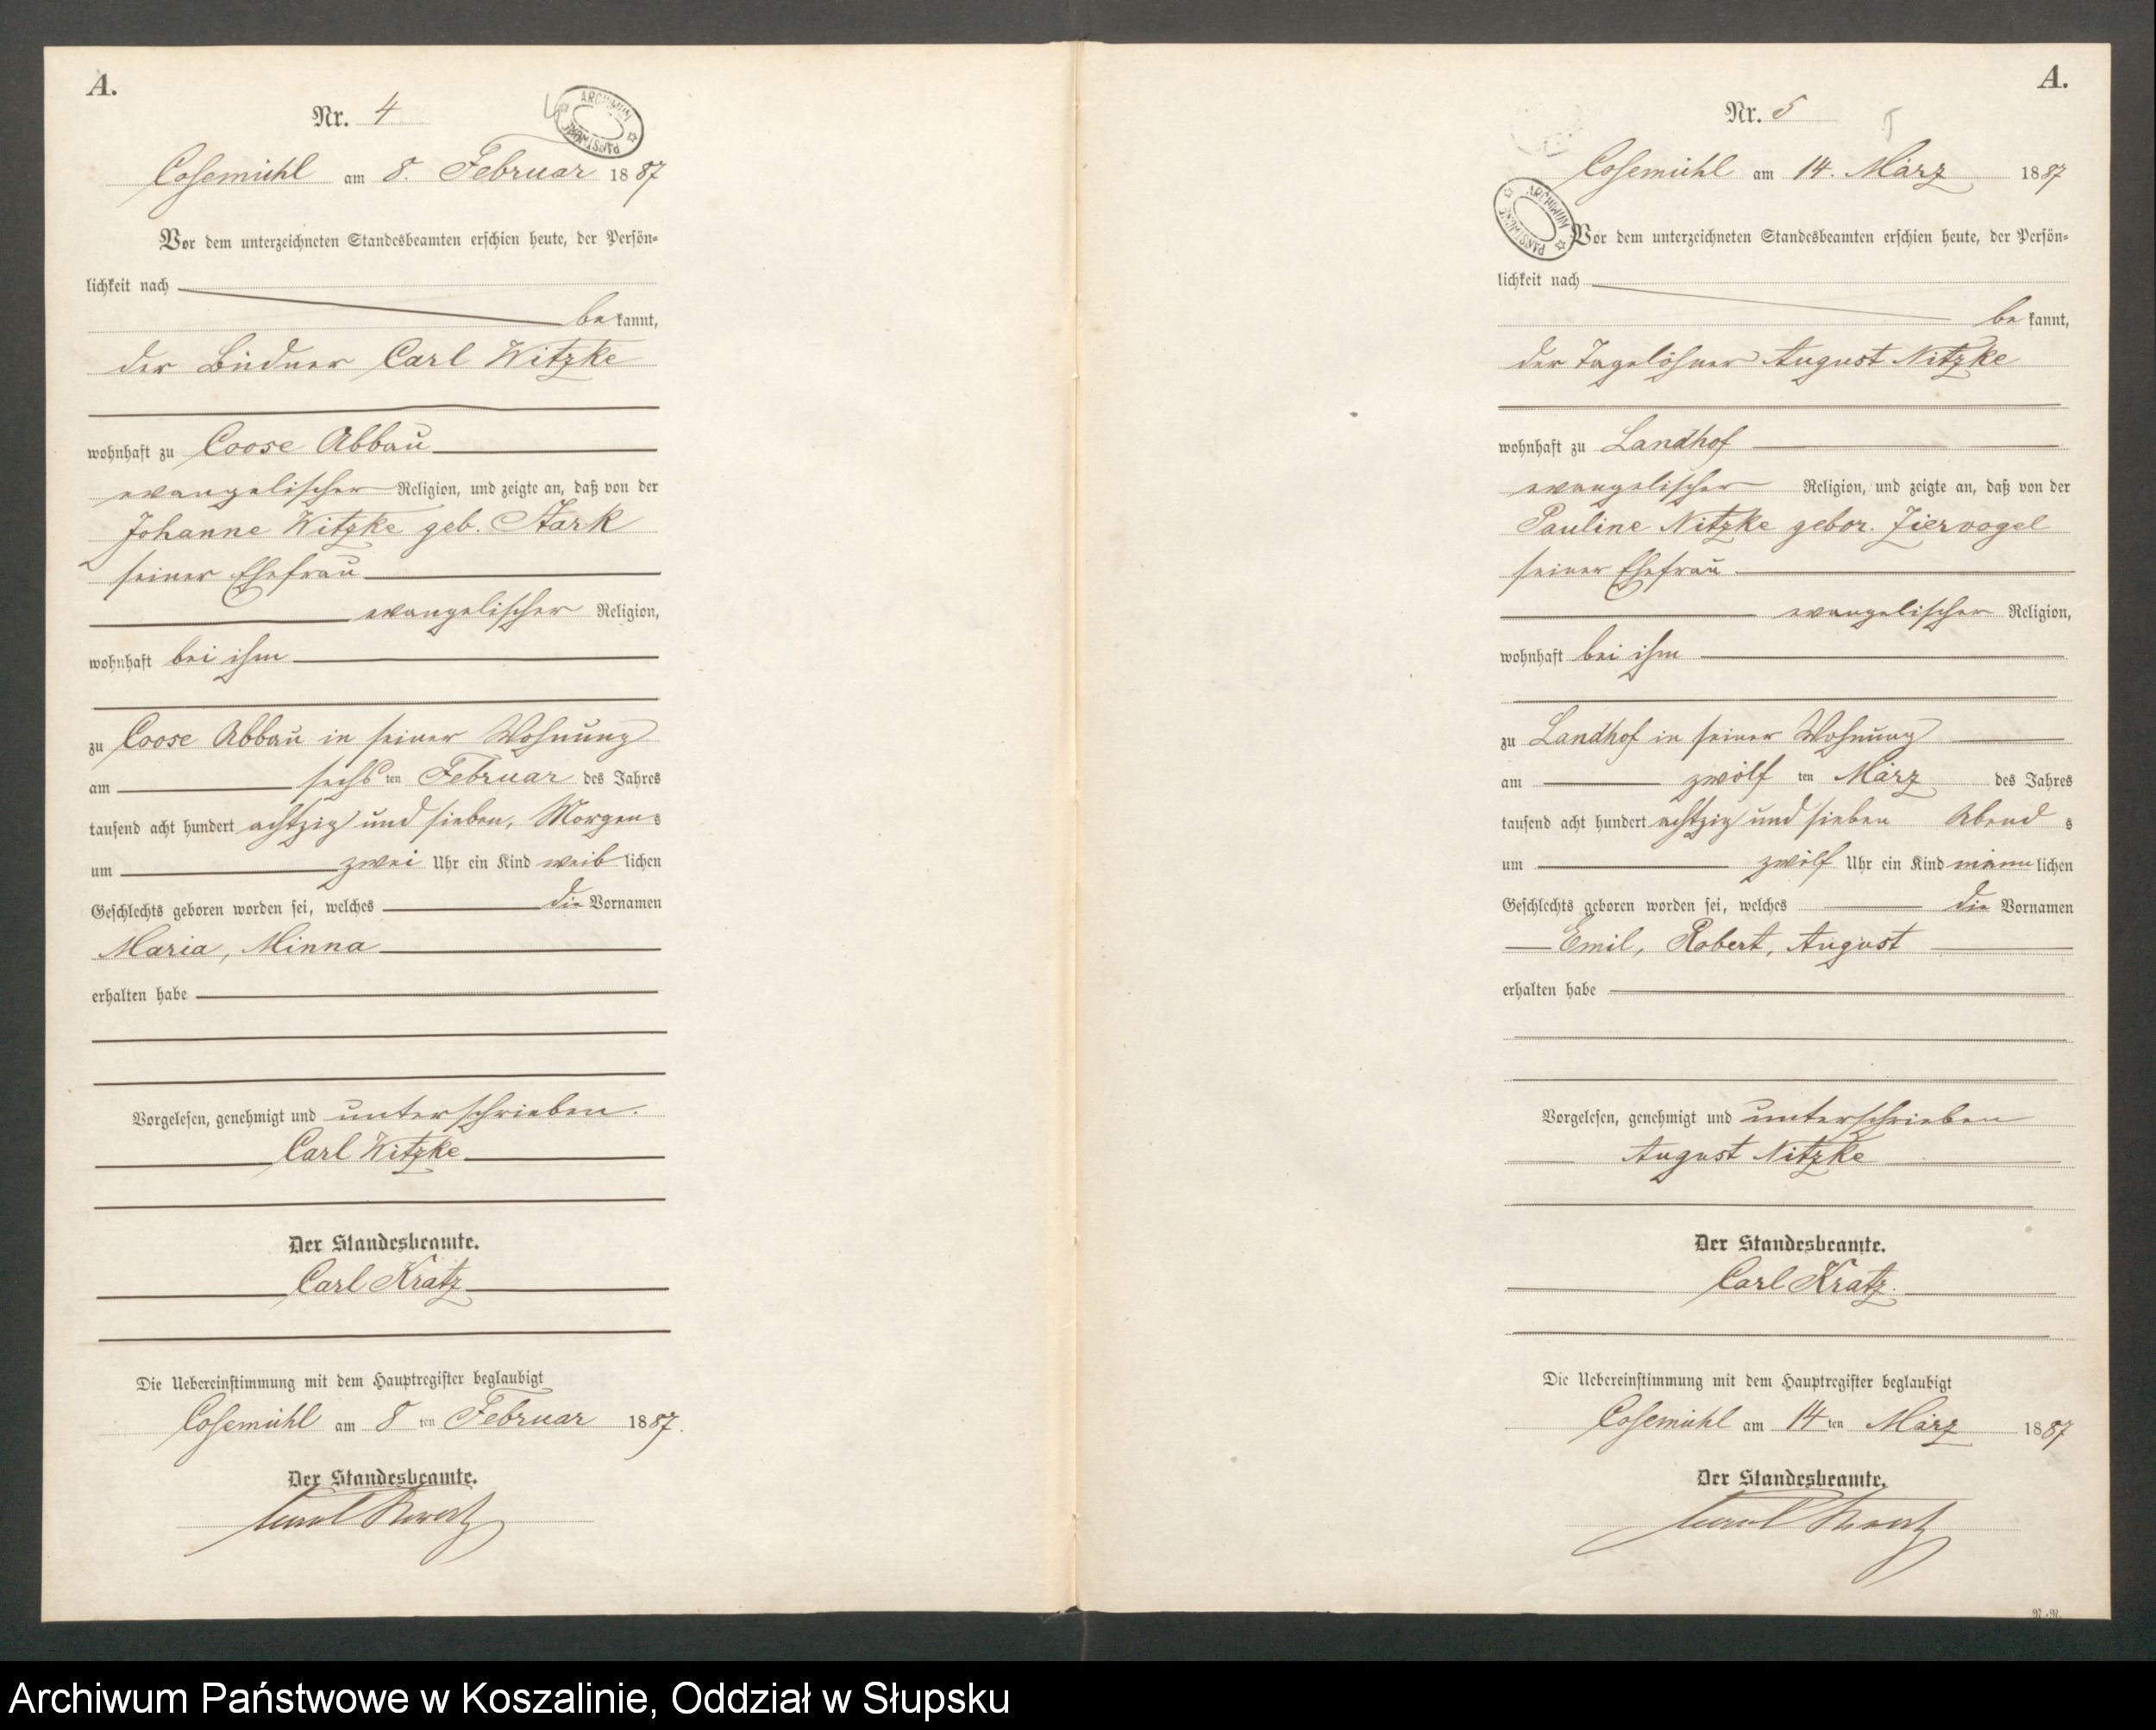 A.
Nr. 4
ARCHIWUM PAŃSTWOWE
Cosemühl am 8. Februar 1887
Vor dem unterzeichneten Standesbeamten erschien heute, der Persön-
lichkeit nach
bekannt,
der Büdner Carl Witzke
wohnhaft zu Coose Abbau
evangelischer Religion, und zeigte an, daß von der
Johanne Witzke geb. Stark
seiner Ehefrau
evangelischer Religion,
wohnhaft bei ihm
zu Coose Abbau in seiner Wohnung
am sechsten Februar des Jahres
tausend acht hundert achtzig und sieben, Morgens
um zwei Uhr ein Kind weiblichen
Geschlechts geboren worden sei, welches die Vornamen
Maria, Minna
erhalten habe
Vorgelesen, genehmigt und unterschrieben.
Carl Witzke
Der Standesbeamte.
Carl Kratz
Die Uebereinstimmung mit dem Hauptregister beglaubigt
Cosemühl am 8ten Februar 1887.
Der Standesbeamte.
Carl Kratz
A.
Nr. 5
5
Cosemühl am 14. März 1887
ARCHIWUM PAŃSTWOWE
Vor dem unterzeichneten Standesbeamten erschien heute, der Persön-
lichkeit nach
bekannt,
der Tagelöhner August Nitzke
wohnhaft zu Landhof
evangelischer Religion, und zeigte an, daß von der
Pauline Nitzke gebor. Ziervogel
seiner Ehefrau
evangelischer Religion,
wohnhaft bei ihm
zu Landhof in seiner Wohnung
am zwölften März des Jahres
tausend acht hundert achtzig und sieben Abends
um zwölf Uhr ein Kind männlichen
Geschlechts geboren worden sei, welches die Vornamen
Emil, Robert, August
erhalten habe
Vorgelesen, genehmigt und unterschrieben
August Nitzke
Der Standesbeamte.
Carl Kratz.
Die Uebereinstimmung mit dem Hauptregister beglaubigt
Cosemühl am 14ten März 1887
Der Standesbeamte.
Carl Kratz
Archiwum Państwowe w Koszalinie, Oddział w Słupsku